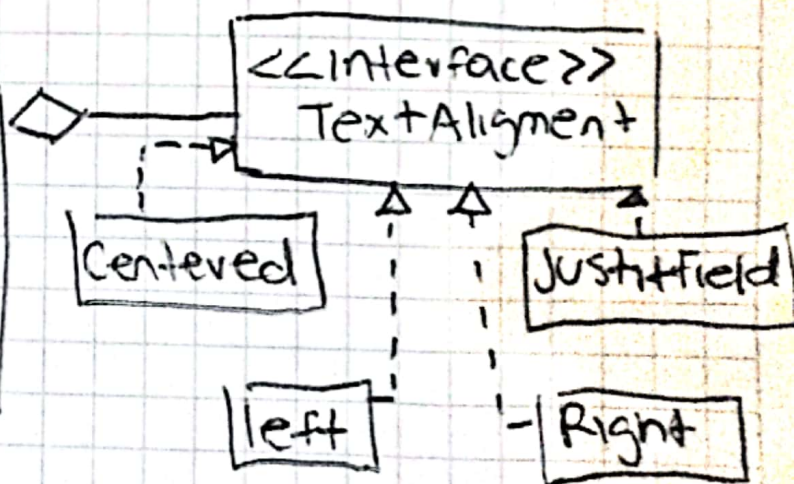 <<Interface>>
TextAligment
Centered
Justitfield
left
Right